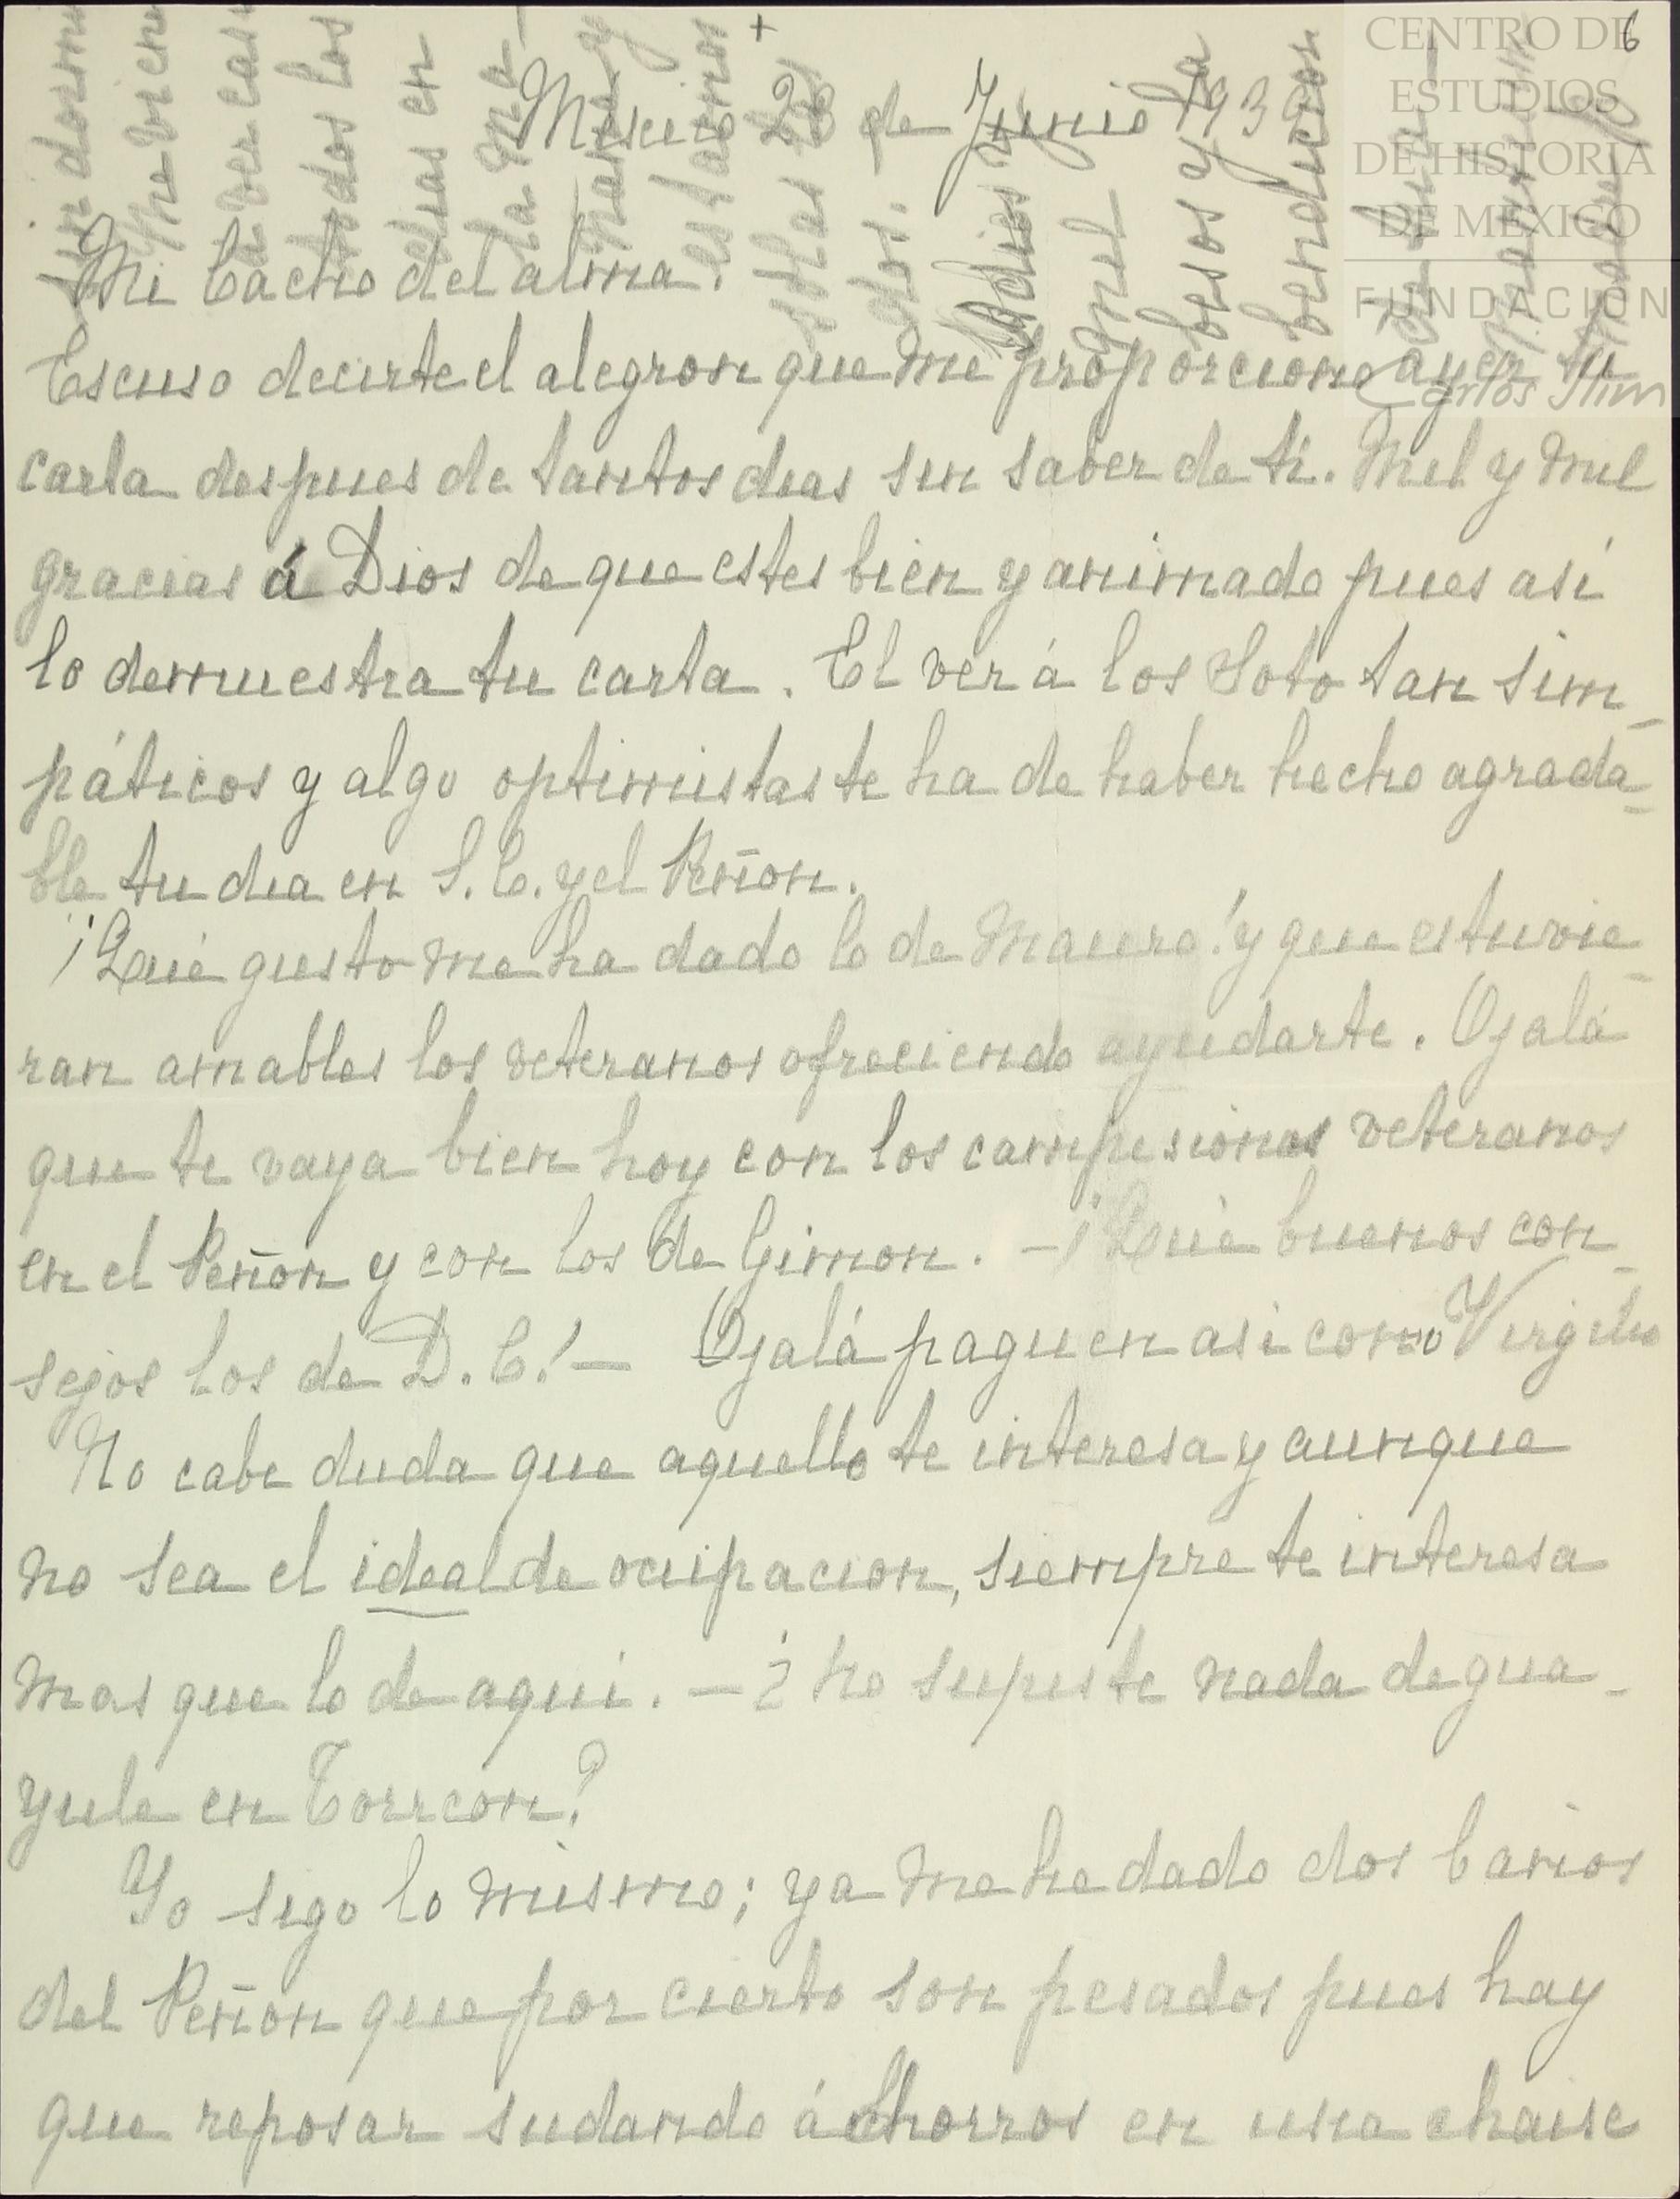 6
CENTRO DE
ESTUDIOS
DE HISTORIA
DE MÉXICO
FUNDACIÓN
Carlos Slim
+
Mexico 28 de Junio 193
Mi Cacho del alma.
Escuso decirte el alegron que me proporciono ayer tu
carta despues de tantos dias sin saber de ti. Mil y mil
gracias á Dios de que estes bien y animado pues asi
lo demuestra tu carta. El ver á los Soto tan sim_
páticos y algo optimistas te ha de haber hecho agrada_
ble tu dia en S. C. y el Peñon.
¡Qué gusto me ha dado lo de Mauro! y que estuvie_
ran amables los veteranos ofreciendo ayudarte. Ojalá
que te vaya bien hoy con los campesinos veteranos
en el Peñon y con los de Gimon. –¡Qué buenos con_
sejos los de D. C.!– Ojalá paguen asi como Virgilio
No cabe duda que aquello te interesa y aunque
no sea el ideal de ocupacion, siempre te interesa
mas que lo de aqui. –¿no supiste nada de gua_
yule en Torreon?
Yo sigo lo mismo; ya me he dado dos baños
del Peñon que por cierto son pesados pues hay
que reposar sudando á chorros en una chaise
dormi
me bien
á ver casi
todos los
dias en
la ma_
estamos
Adios
mil
besos y la
bendicion
de tu
madre